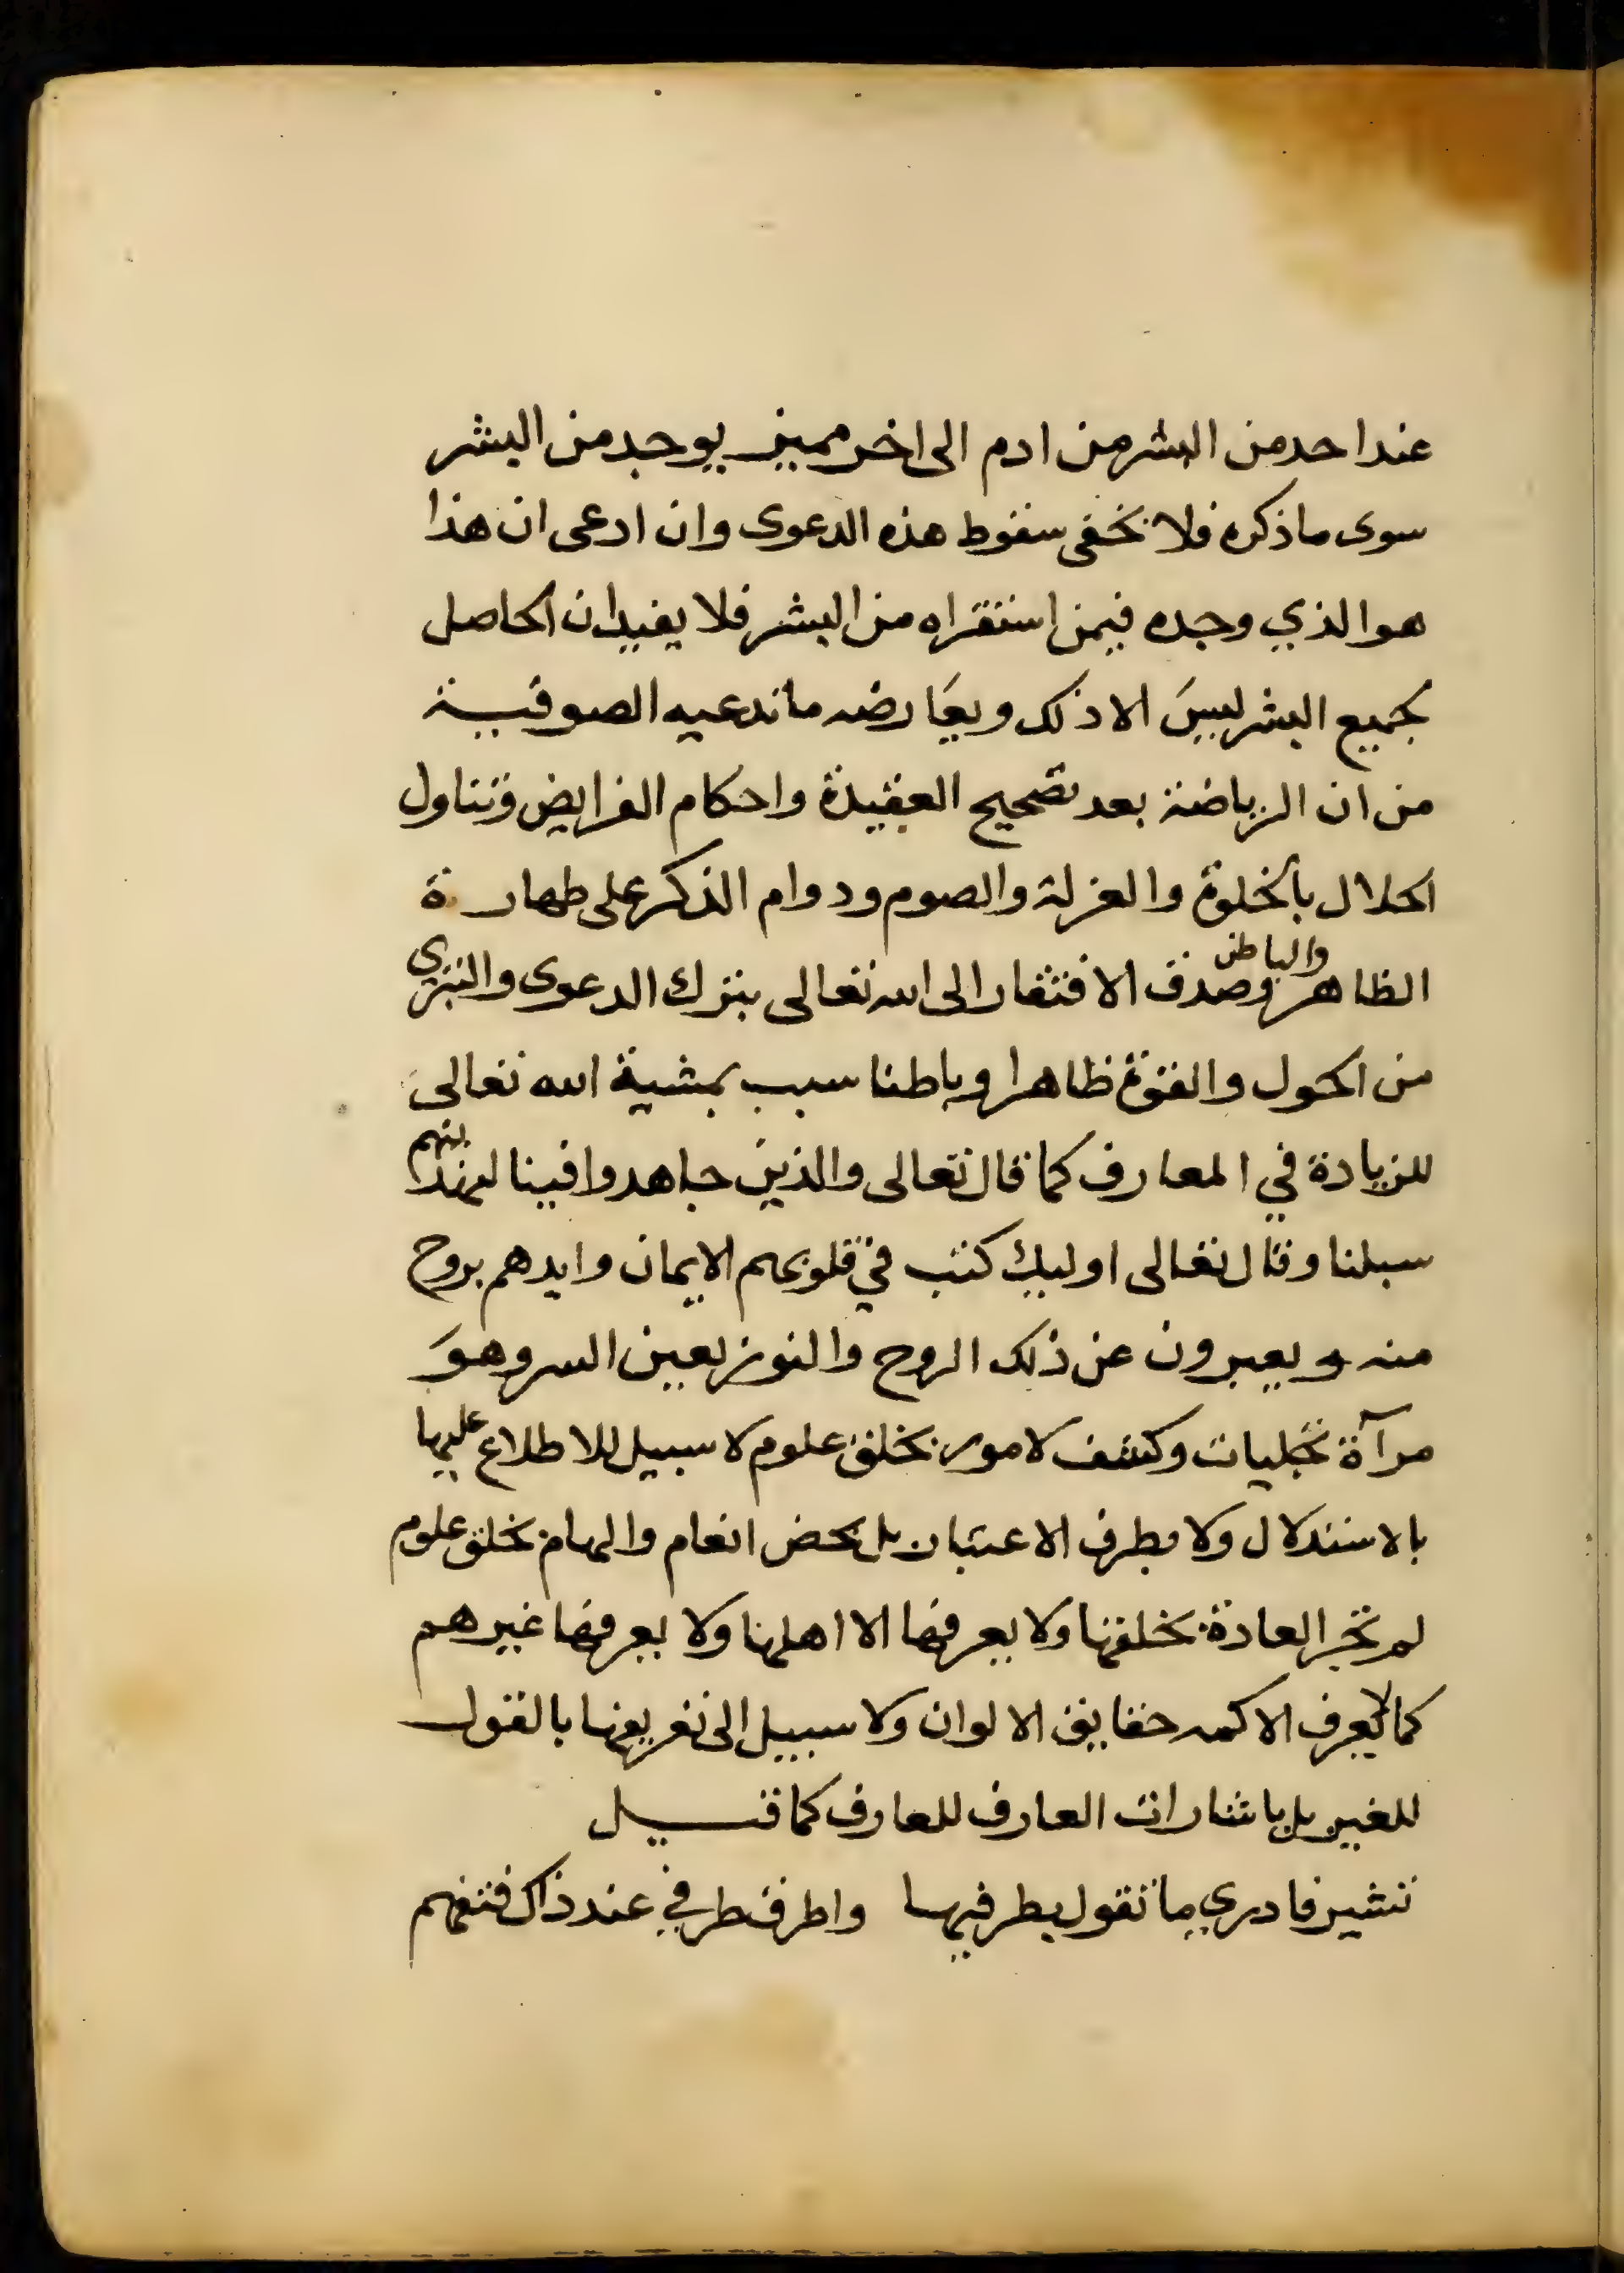 عند احد من البشر من ادم الى اخر مميز يوجد من البشر
سوى ما ذكره فلا تخفى سقوط هذه الدعوى وان ادعى ان هذا
هو الذي وجده فيمن استقراه من البشر فلا يفيد ان الحاصل
لجميع البشر ليس الا ذلك ويعارضه ما تدعيه الصوفية
من ان الرياضة بعد تصحيح العقيدة واحكام الفرايض وتناول
الحلال بالخلوة والعزلة والصوم ودوام الذكر على طهارة
الظاهر والباطن وصدق الافتقار الى الله تعالى بترك الدعوى والتبري
من الحول والقوة ظاهرا وباطنا سبب بمشية الله تعالى
للزيادة في المعارف كما قال تعالى والذين جاهدوا فينا لنهدينهم
سبلنا وقال تعالى اوليك كتب في قلوبهم الايمان وايدهم بروح
منه ويعبرون عن ذلك الروح والنور بعين السر وهو
مرآة تجليات وكشف لامور بخلق علوم لا سبيل للاطلاع عليها
بالاستدلال ولا بطرف الاعتبار بل بمحض انعام والهام بخلق علوم
لم تجر العادة بخلقها ولا يعرفها الا اهلها ولا يعرفها غيرهم
كما لا يعرف الاكمه حقايق الالوان ولا سبيل الى تعريفها بالقول
للغير بل باشارات العارف للعارف كما قيل
تشير فادري ما تقول بطرفها واطرق طرفي عند ذاك فتفهم